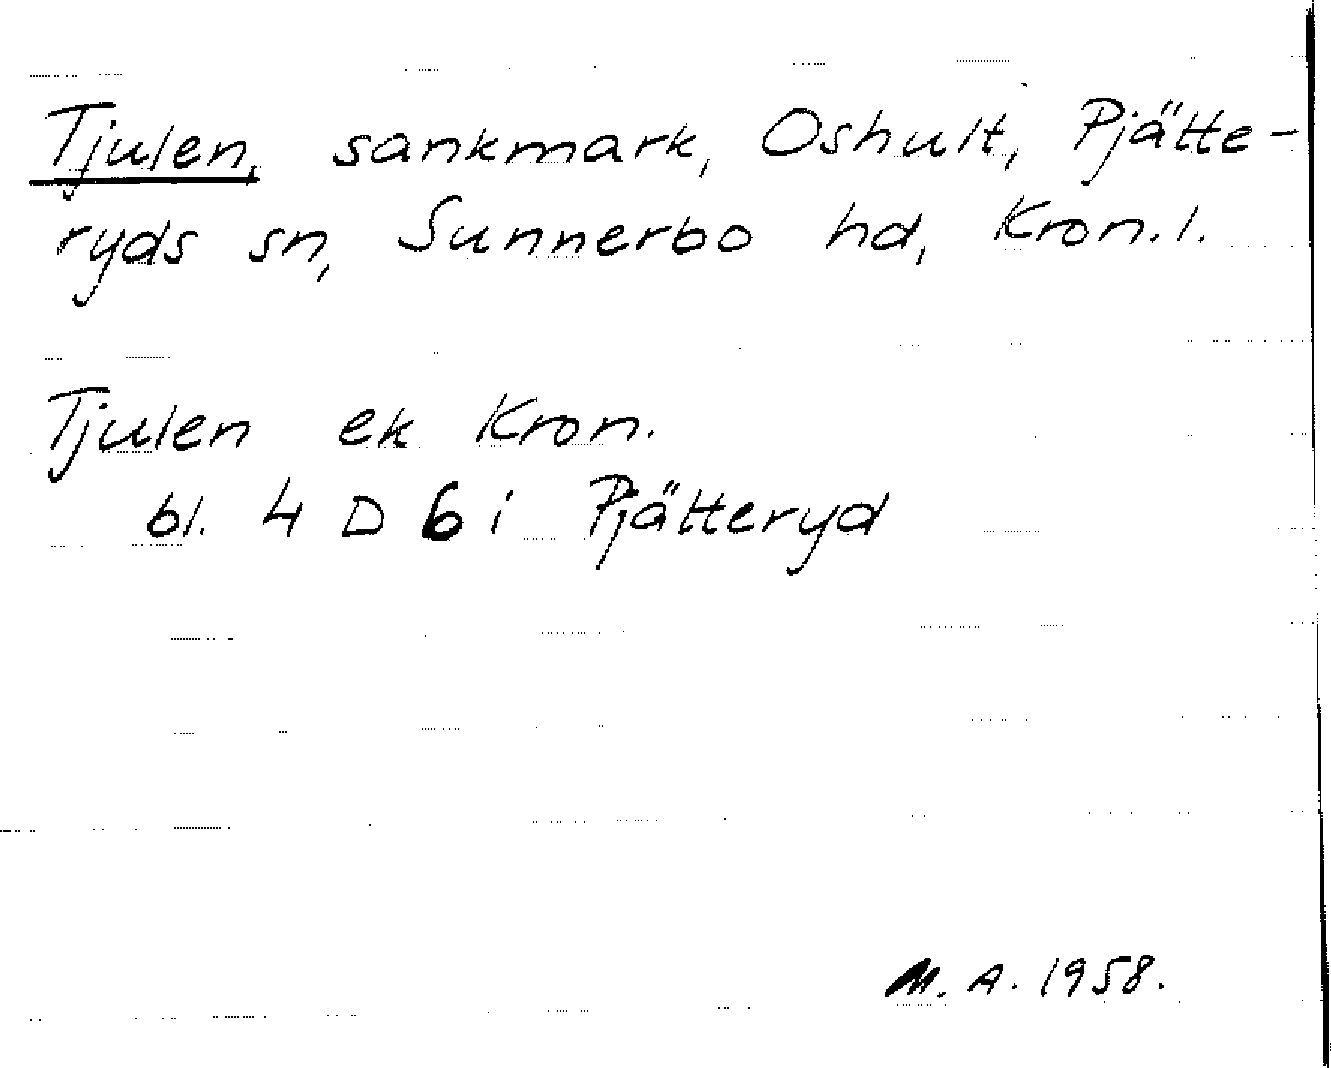 Tjulen, sankmark, Oshult, Pjätte-
ryds sn, Sunnerbo hd, Kron.l.
Tjulen ek Kron.
bl. 4 D 6 i Pjätteryd
M. A. 1958.